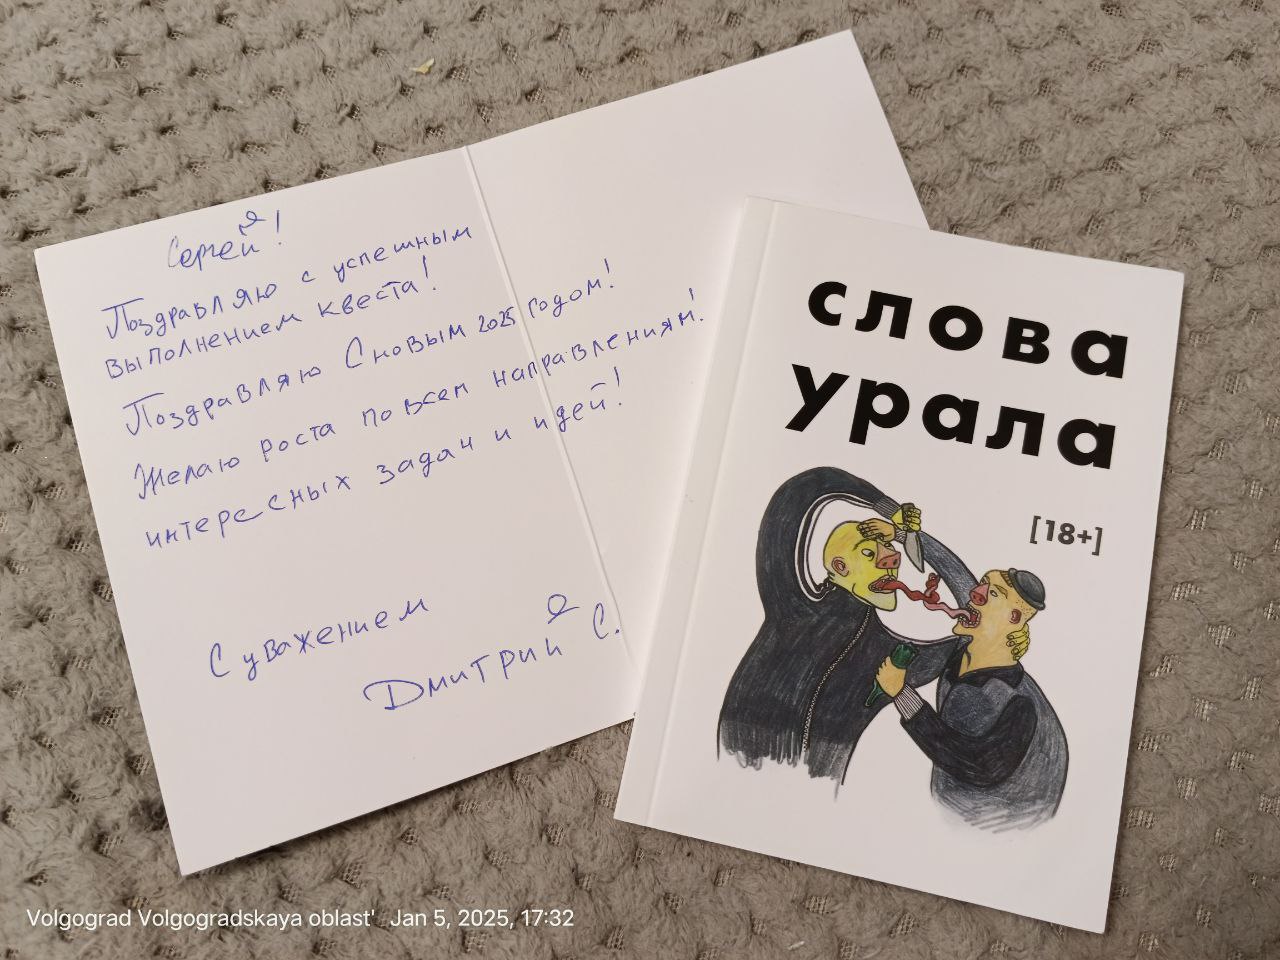 Сергей!
Поздравляю с успешным
выполнением квеста!
Поздравляю С новым 2025 годом!
Желаю роста по всем направлениям!
интересных задач и идей!
С уважением
Дмитрий С.
слова
урала
[18+]
Volgograd Volgogradskaya oblast' Jan 5, 2025, 17:32